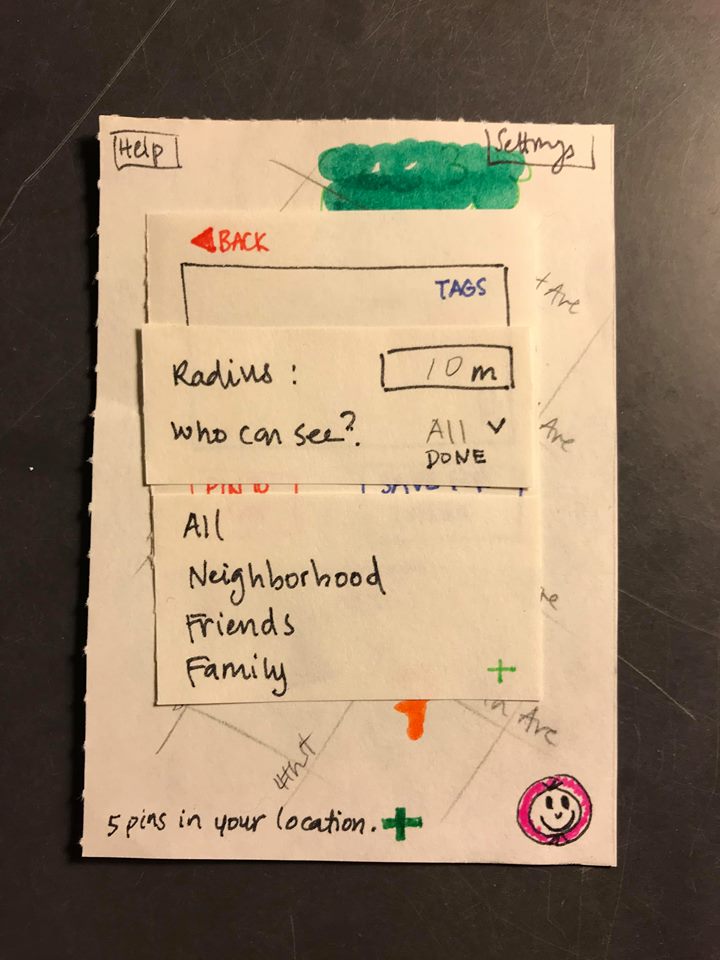 Help
Settings
BACK
TAGS
Ave
Radius :
10 m
Ave
Who can see?
All
DONE
All
Neighborhood
Friends
Family
+
Ave
4th
5 pins in your location. +